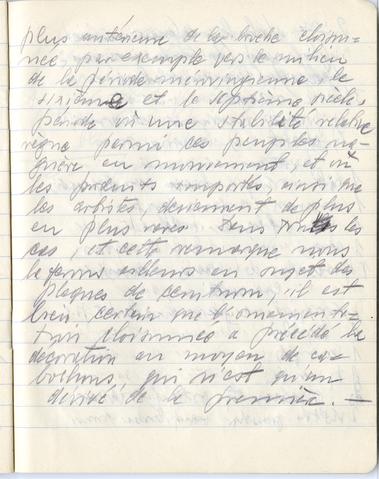 plus antérieure de la broche cloison=
née par exemple vers le milieu
de la période mérovingienne le
sixième et le septième siècle,
période où une stabilité relative
règne parmi ces peuples na=
guère en mouvement, et où
les produits importés, ainsi que
les artistes, deviennent de plus
en plus rares. Dans tous les
cas, et cette remarque nous
la ferons ailleurs au sujet des
plaques de ceinturon, il est
bien certain que l'ornementa=
tion cloisonnée a précédé la
décoration au moyen de ca=
bochons, qui n'est qu'un
dérivé de la première. —